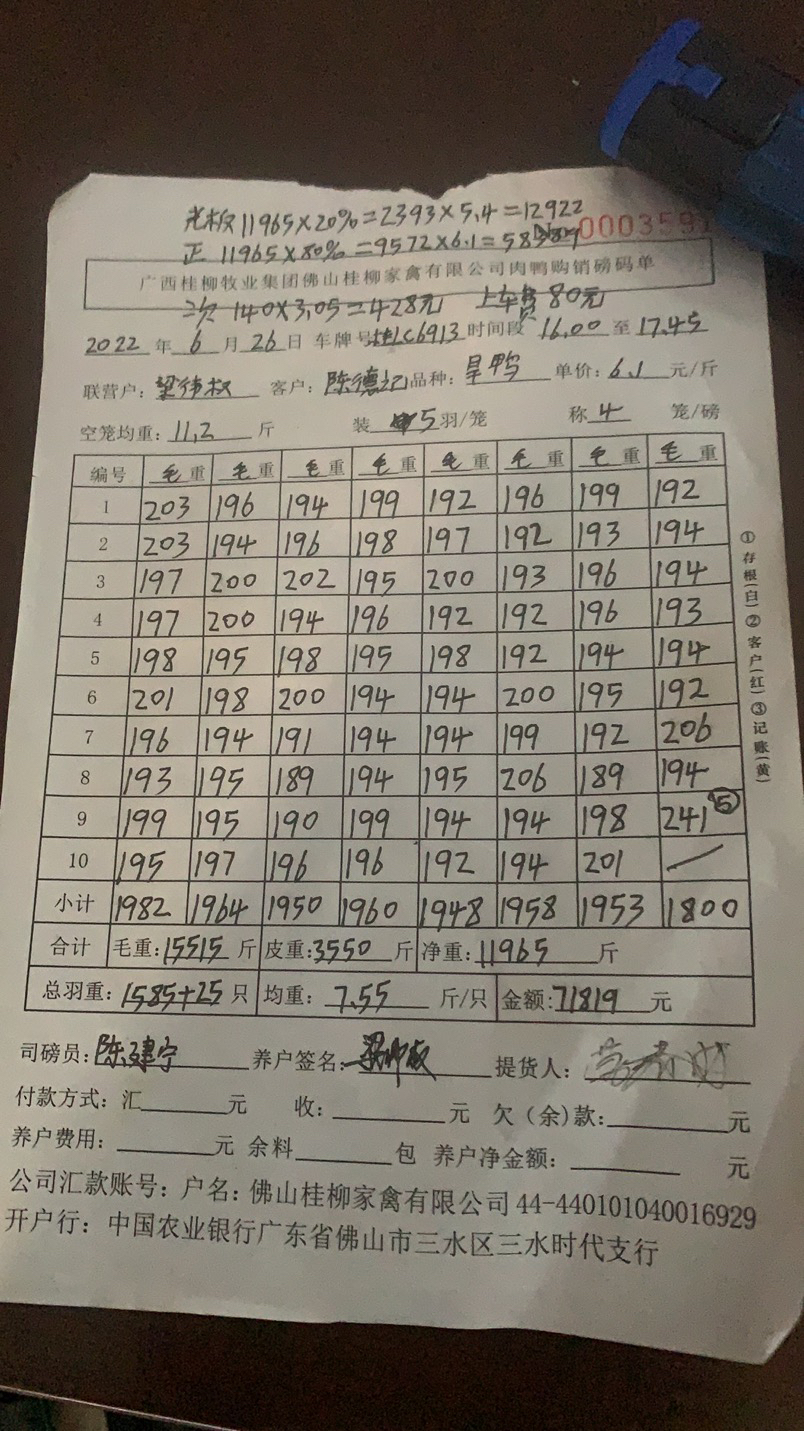 光板11965×20%=2393×5.4=12922
正 11965×80%=9572×6.1=58389
No 000359
广西桂柳牧业集团佛山桂柳家禽有限公司肉鸭购销磅码单
次 140×3.05=428元 上车费80元
2022 年 6 月 26 日 车牌号桂LC6913 时间段 16.00 至 17.45
联营户: 梁伟权 客户: 陈德记 品种: 旱鸭 单价: 6.1 元/斤
空笼均重: 11.2 斤 装 5 羽/笼 称 4 笼/磅
编号 毛重 毛重 毛重 毛重 毛重 毛重 毛重 毛重
1 203 196 194 199 192 196 199 192
2 203 194 196 198 197 192 193 194
3 197 200 202 195 200 193 196 194
4 197 200 194 196 192 192 196 193
5 198 195 198 195 198 192 194 194
6 201 198 200 194 194 200 195 192
7 196 194 191 194 194 199 192 206
8 193 195 189 194 195 206 189 194
9 199 195 190 199 194 194 198 241 ⑤
10 195 197 196 196 192 194 201 —
小计 1982 1964 1950 1960 1948 1958 1953 1800
合计 毛重: 15515 斤 皮重: 3550 斤 净重: 11965 斤
总羽重: 1585+25 只 均重: 7.55 斤/只 金额: 71819 元
司磅员: 陈建宁 养户签名: 提货人:
付款方式: 汇 元 收: 元 欠(余)款: 元
养户费用: 元 余料 包 养户净金额: 元
公司汇款账号: 户名: 佛山桂柳家禽有限公司 44-440101040016929
开户行: 中国农业银行广东省佛山市三水区三水时代支行
①存根(白)②客户(红)③记账(黄)